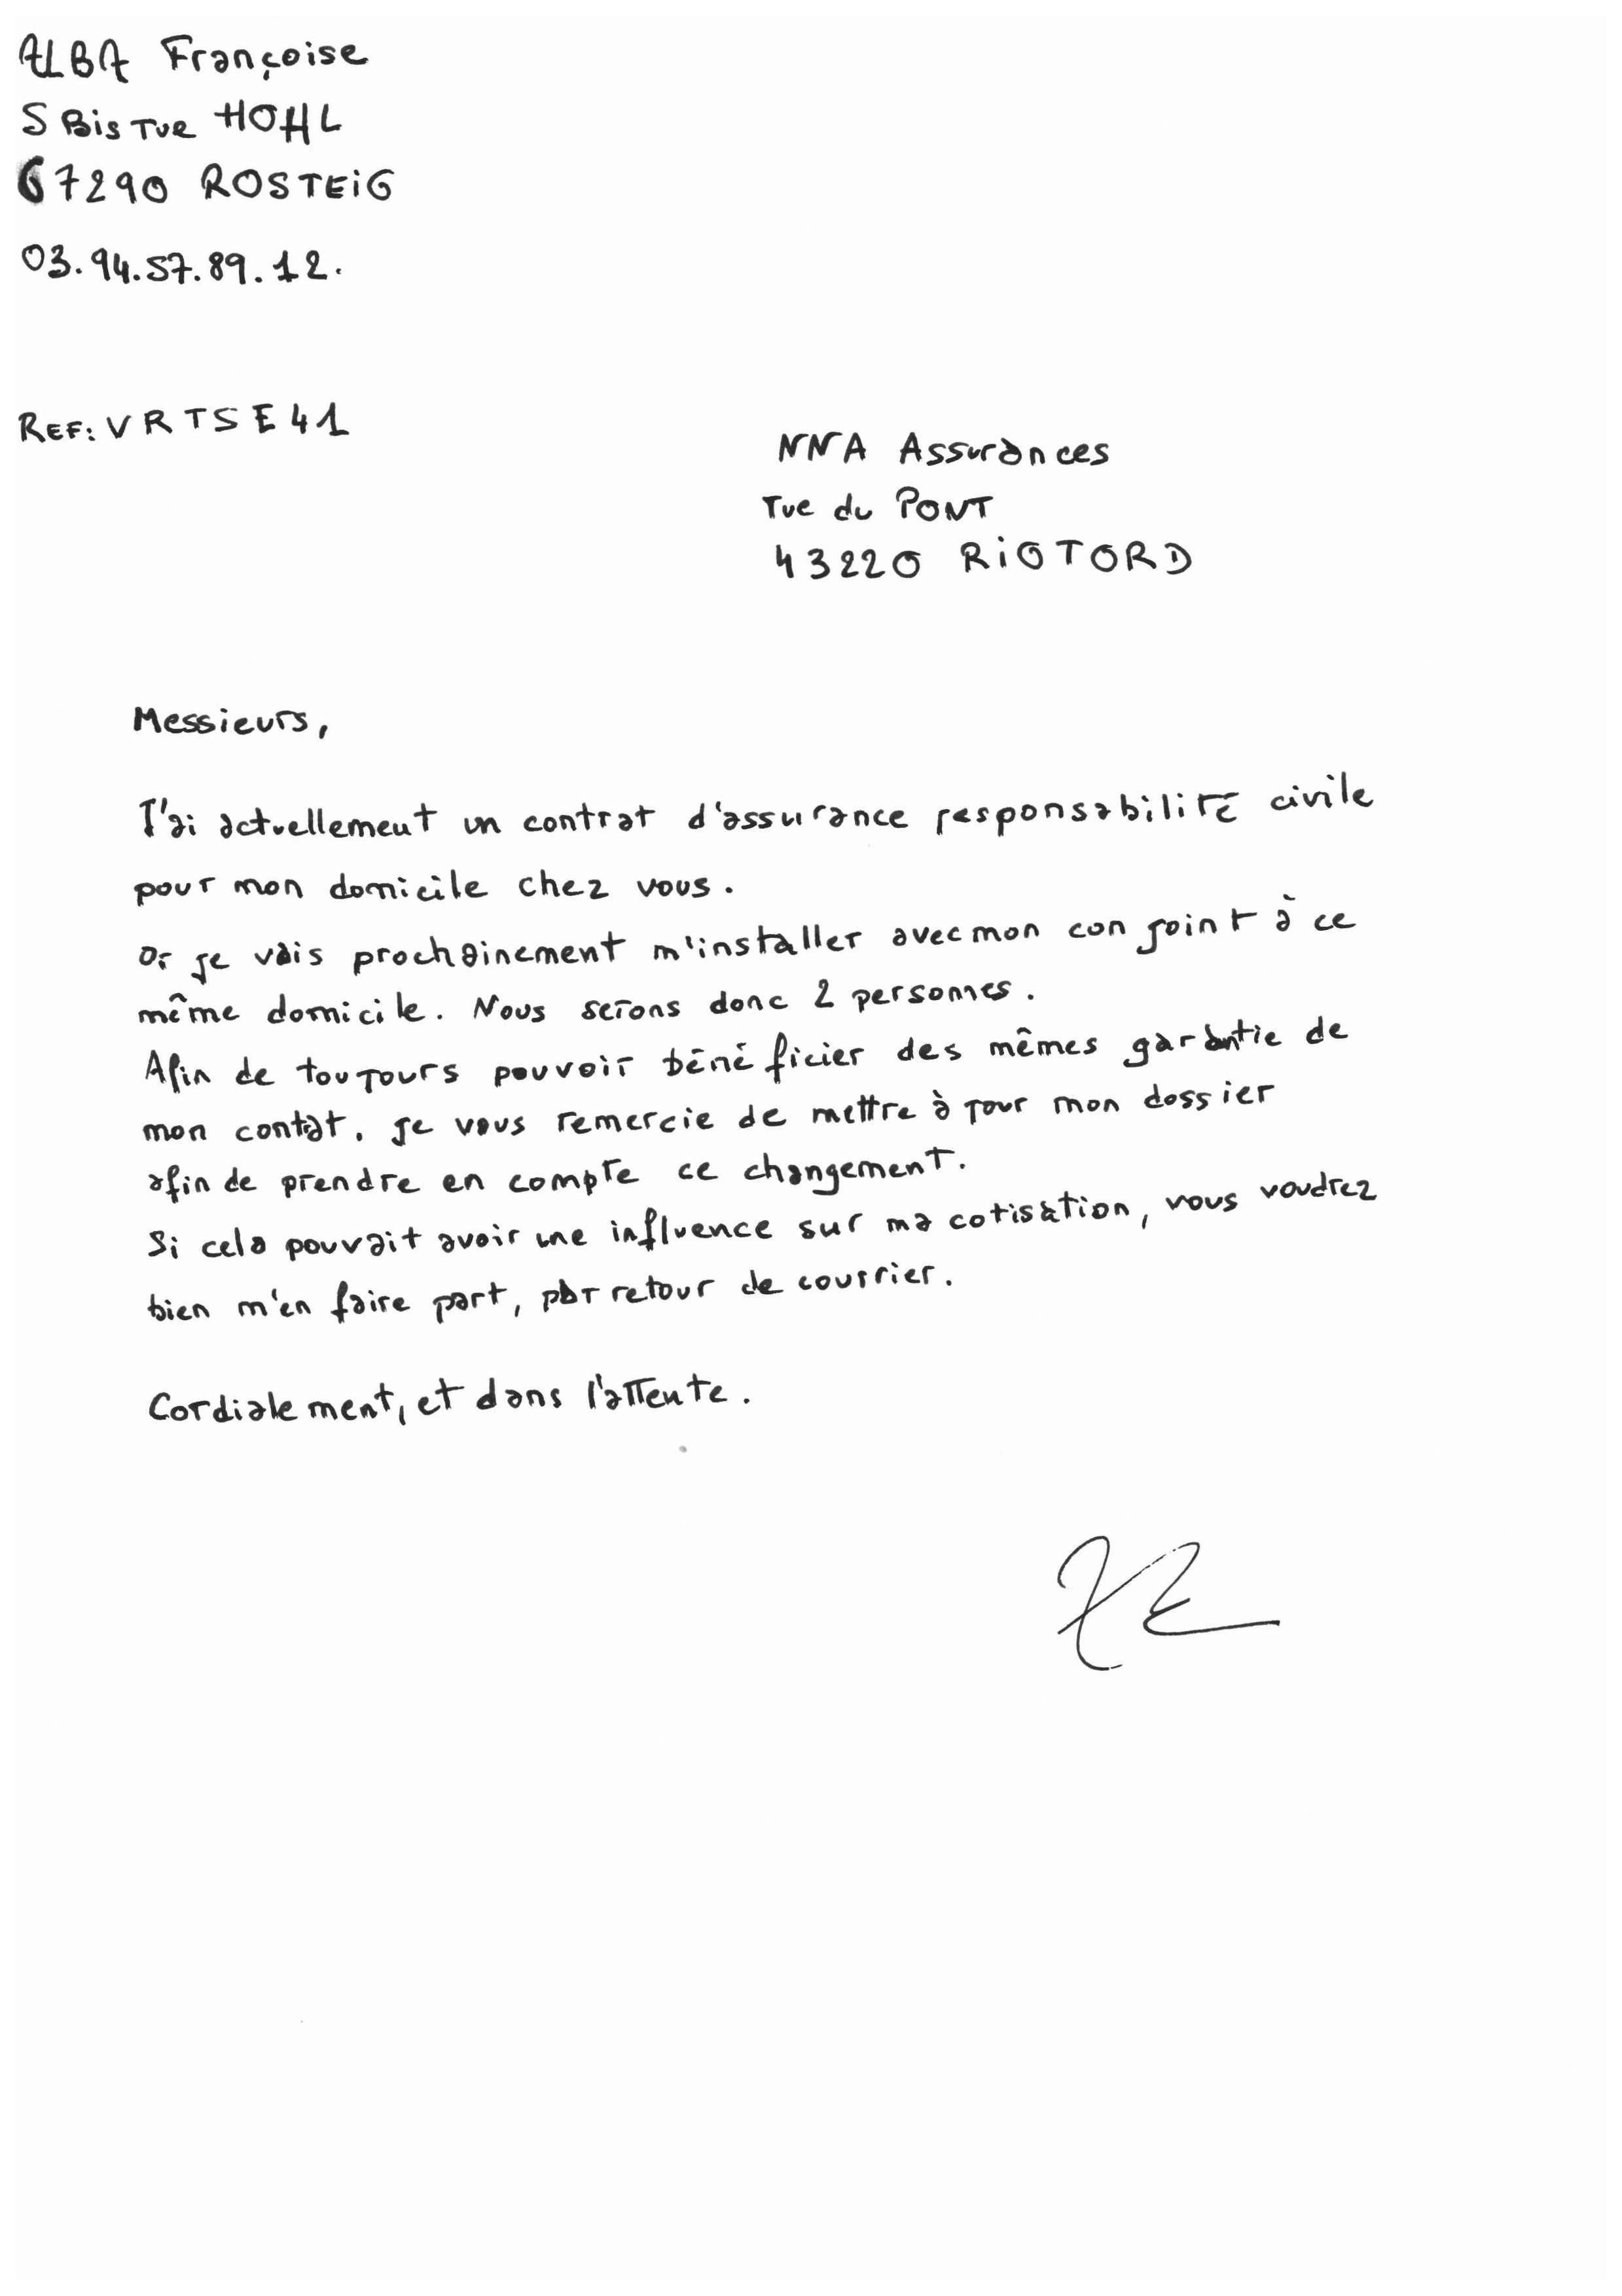 ALBA Françoise
5 Bis rue HOHL
67290 ROSTEIG
03.94.57.89.12.
REF: VRTSE41
NNA Assurances
rue du PONT
43220 RIOTORD
Messieurs,
J'ai actuellement un contrat d'assurance responsabilité civile
pour mon domicile chez vous.
Or je vais prochainement m'installer avec mon conjoint à ce
même domicile. Nous serons donc 2 personnes.
Afin de toujours pouvoir bénéficier des mêmes garantie de
mon contat, je vous remercie de mettre à jour mon dossier
afin de prendre en compte ce changement.
Si cela pouvait avoir une influence sur ma cotisation, vous voudrez
bien m'en faire part, par retour de courrier.
Cordialement, et dans l'attente.